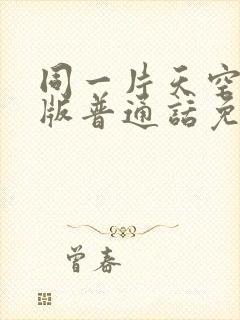 同一片天空
版普通话免
曾春